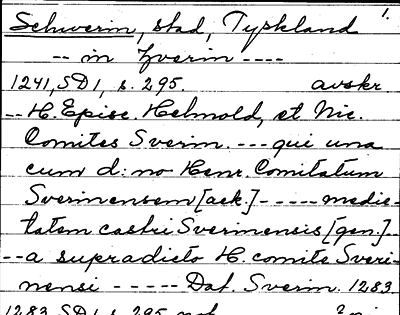 1.
Schwerin, stad, Tyskland
-- in Zverin ----
1241, SD 1, s. 295. avskr
-- H. Episc. Helmold, et Nic.
Comites Sverin. --- qui una
cum d:no Henr. Comitatum
Sverinensem [ack.] ----- medie-
tatem castri Sverinensis [gen.] --
-- a supradicto H. comite Sveri-
nensi ----- Dat. Sverin. 1283.
1283, SD 1, s. 295 not